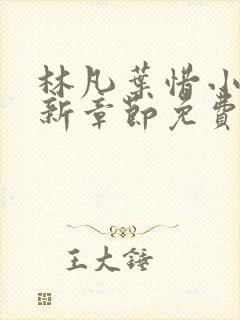 林凡葉惜小
新章節免費
王大錘